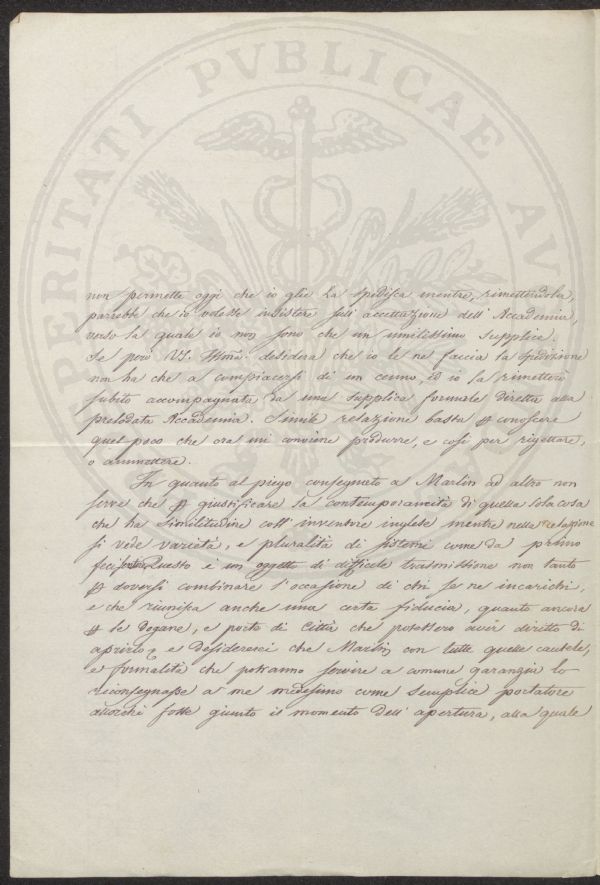 PERITATI PVBLICAE AV
non permette oggi che io glie la spedisca mentre, rimettendola,
parrebbe che io volessi insistere sull' accettazione dell' Accademia,
verso la quale io non sono che un umilissimo supplica.
Se però VS. Illma. desidera che io le ne faccia la spedizione
non ha che a compiacersi di un cenno, ed io la rimetterò
subito accompagnata da una supplica formale diretta alla
prelodata Accademia. Simile relazione basta p conoscere
quel poco che ora mi conviene produrre, e così per rigettare,
o ammettere.
In quanto al piego consegnato a Marlin ad altro non
serve che p giustificare la contemporaneità di quella sola cosa
che ha similitudine coll' inventore inglese mentre nella relazione
si vede varietà, e pluralità di sistemi come da primo
feci Questo è un oggetto di difficile trasmissione non tanto
p doversi combinare l'occasione di chi se ne incarichi,
e che riunisca anche una certa fiducia, quanto ancora
p le Dogane, e porte di Città che potessero aver diritto di
aprirlo, e desidererei che Marlin con tutte quelle cautele,
e formalità che potranno servire a comune garanzia lo
riconsegnasse a me medesimo come semplice portatore
allorchè fosse giunto il momento dell' apertura, alla quale